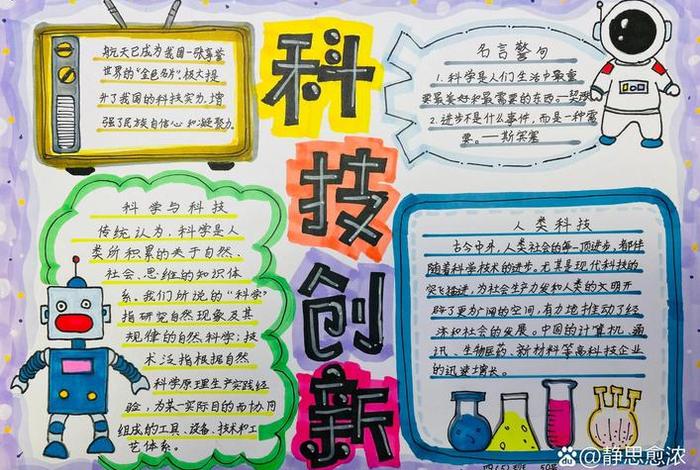 航天已成为我国一张享誉
世界的“金色名片”,极大提
升了我国的科技实力,增
强了民族自信心和凝聚力。
科
技
创
新
名言警句
1.科学是人们生活中最重
要最美好和最需要的东西。—契诃夫
2.进步不是什么事件,而是一种需
要。——斯宾塞
科学与科技
传统认为,科学是人
类所积累的关于自然、
社会、思维的知识体
系。我们所说的“科学”
指研究自然现象及其
规律的自然科学;技
术泛指根据自然
科学原理生产实践经
验,为某一实际目的而协同
组成的工具、设备、技术和工
艺体系。
人类科技
古今中外,人类社会的每一项进步,都伴
随着科学技术的进步。尤其是现代科技的
突飞猛进,为社会生产力发和人类的文明开
辟了更为广阔的空间,有力地推动了经
济和社会的发展。中国的计算机、通
讯、生物医药、新材料等高科技企业
的迅速增长。
四(5)班
静思愈浓